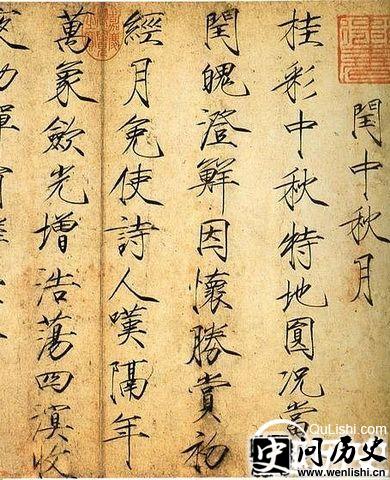 閏中秋月
桂彩中秋特地圓况當
閏魄澄鮮因懷勝賞初
經月免使詩人嘆隔年
萬象斂光增浩蕩四溟收
QuLishi.com
问历史
www.wenlishi.cn